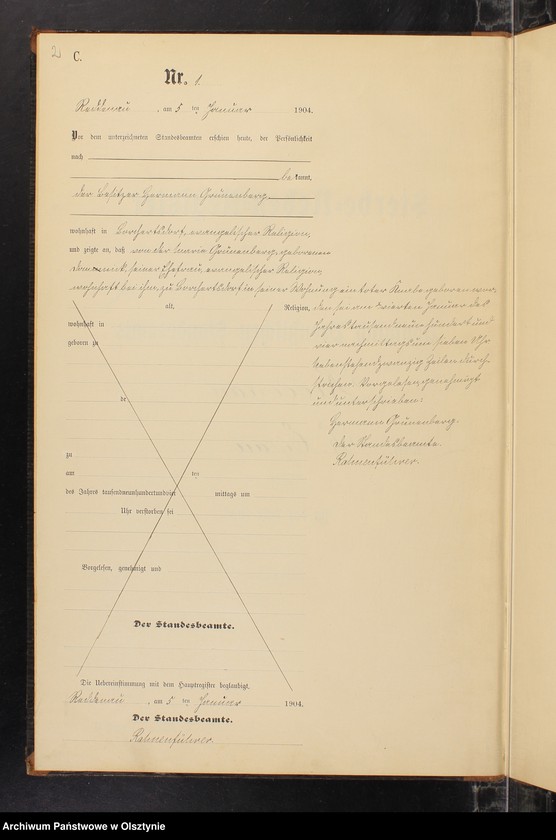 2
C.
Nr. 1.
Reddenau, am 5 ten Januar 1904.
Vor dem unterzeichneten Standesbeamten erschien heute, der Persönlichkeit
nach
bekannt,
der Besitzer Hermann Grünenberg
wohnhaft in Borchertsdorf, evangelischer Religion,
und zeigte an, daß von der Maria Grünenberg, geborenen
seiner Ehefrau, evangelischer Religion,
wohnhaft bei ihm, zu Borchertsdorf in seiner Wohnung ein toter Knabe geboren wor-
den sei am vierten Januar des
Jahres tausend neunhundert und
vier nachmittags um sieben Uhr
Nebenstehend zwanzig Zeilen durch-
strichen. Vorgelesen, genehmigt
und unterschrieben:
Hermann Grünenberg.
Der Standesbeamte.
Rahnenführer.
alt, Religion,
wohnhaft in
geboren zu
de
zu
am ten
des Jahres tausendneunhundertundvier mittags um
Uhr verstorben sei
Vorgelesen, genehmigt und
Der Standesbeamte.
Die Uebereinstimmung mit dem Hauptregister beglaubigt.
Reddenau, am 5 ten Januar 1904.
Der Standesbeamte.
Rahnenführer.
Archiwum Państwowe w Olsztynie